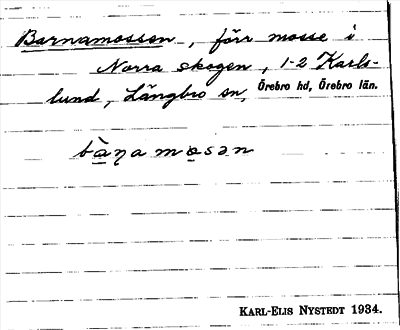 Barnamossen, förr mosse i
Norra skogen, 1-2 Karls-
lund, Längbro sn, Örebro hd, Örebro län.
bàŋa mɷsən
KARL-ELIS NYSTEDT 1934.